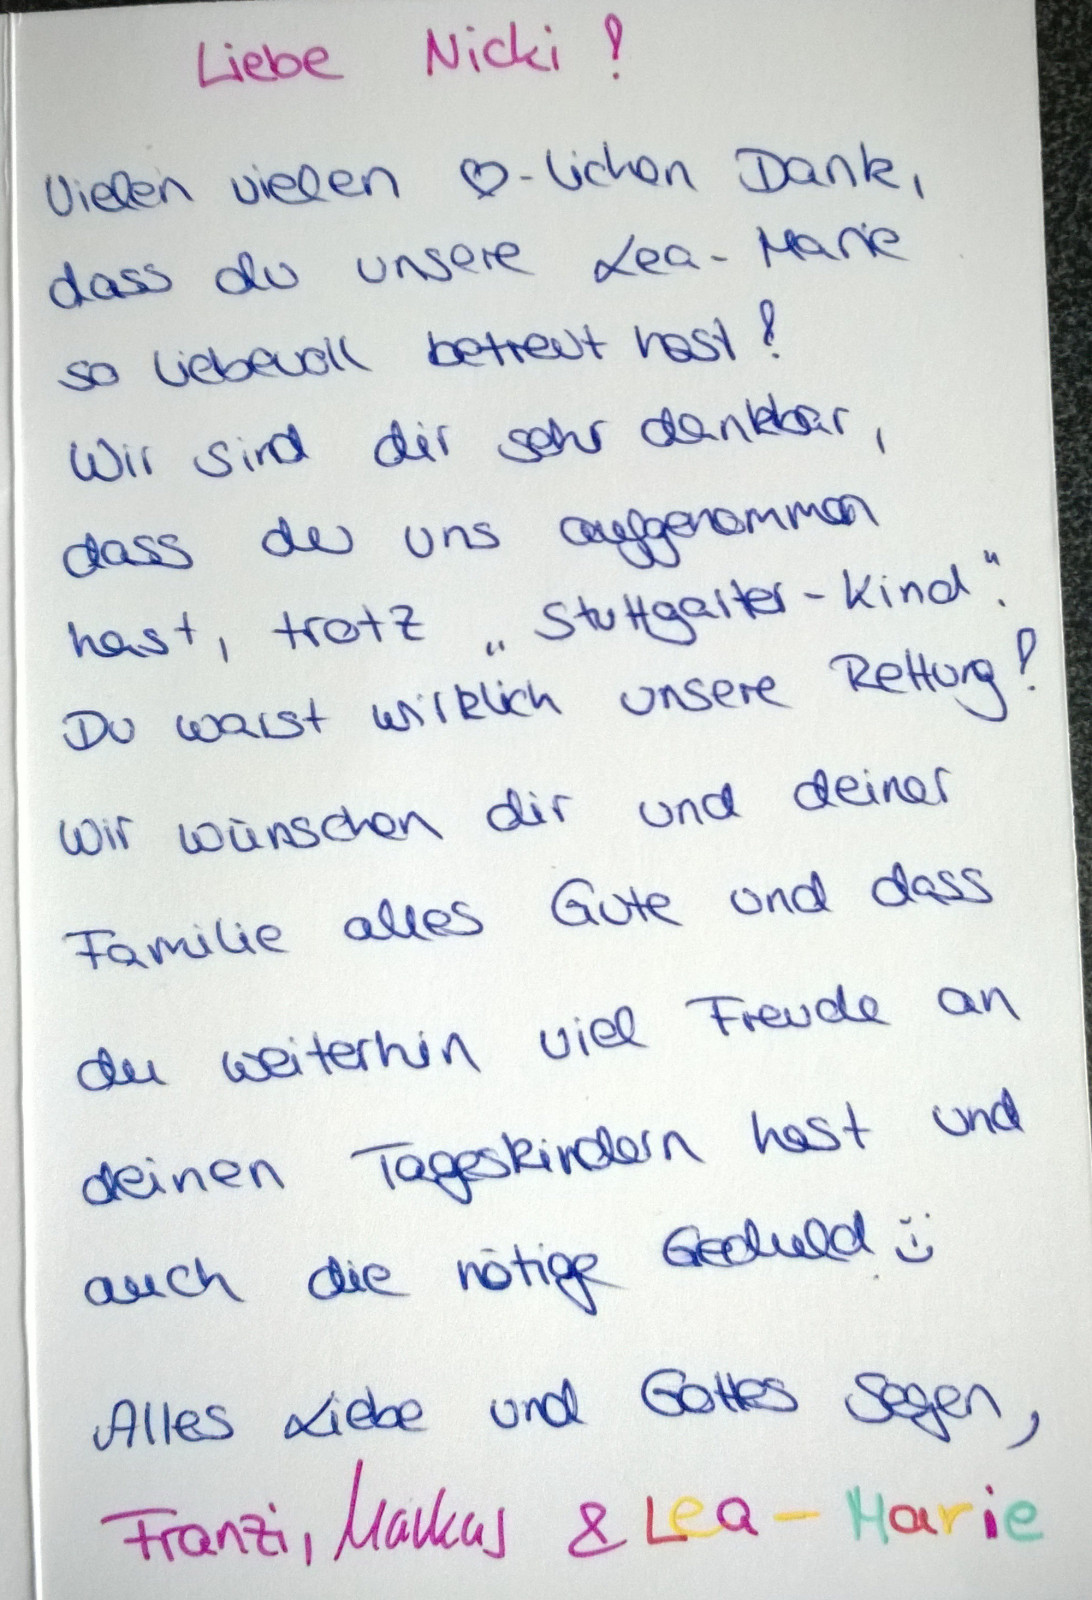 Liebe Nicki!
Vielen vielen ♡-lichen Dank,
dass du unsere Lea-Marie
so liebevoll betreut hast!
Wir sind dir sehr dankbar,
dass du uns aufgenommen
hast, trotz „Stuttgarter-Kind“.
Du warst wirklich unsere Rettung!
Wir wünschen dir und deiner
Familie alles Gute und dass
du weiterhin viel Freude an
deinen Tageskindern hast und
auch die nötige Geduld ☺
Alles Liebe und Gottes Segen,
Franzi, Markus & Lea-Marie